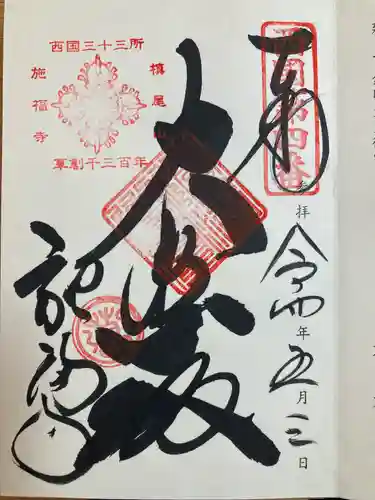 奉拝
西国第四番
令和四年五月三日
大悲殿
施福寺
西国三十三所
槙尾
施福寺
草創千三百年